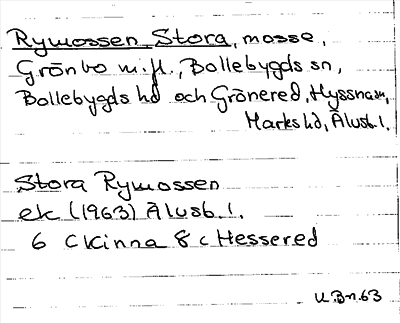 Rymossen, Stora, mosse,
Grönbo m.fl., Bollebygds sn,
Bollebygds hd och Grönered, Hyssna sn,
Marks hd, Älvsb. l.
Stora Rymossen
ek (1963) Älvsb. l.
6 c Kinna 8 c Hessered
U.Bn.63